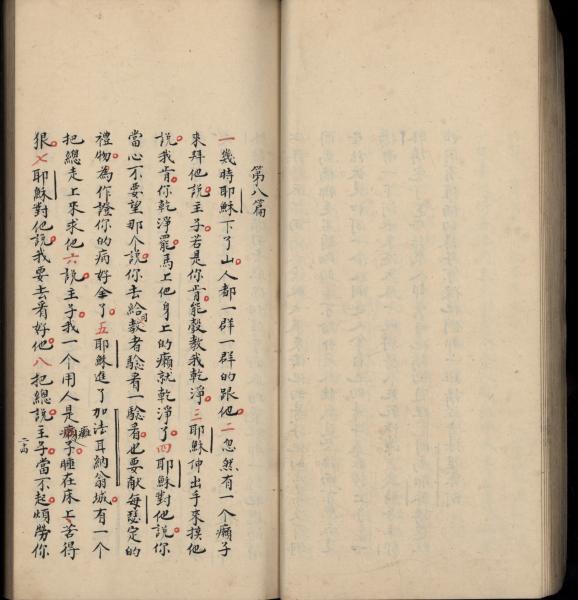 第八篇
一幾時耶穌下了山人都一群一群的跟他二忽然有一個癩子
來拜他說主子若是你肯能彀教我乾淨三耶穌伸出手來挨他
說我肯你乾淨罷馬上他身上的癩就乾淨了四耶穌對他說你
當心不要望那个說你去給教者騐看一騐看也要献每瑟定的
禮物為作證你的病好全了五耶穌進了加法耳納翁城有一个
把總走上來求他六說主子我一个用人是癱子睡在床上苦得
狠七耶穌對他說我要去看好他八把總說主子當不起煩勞你